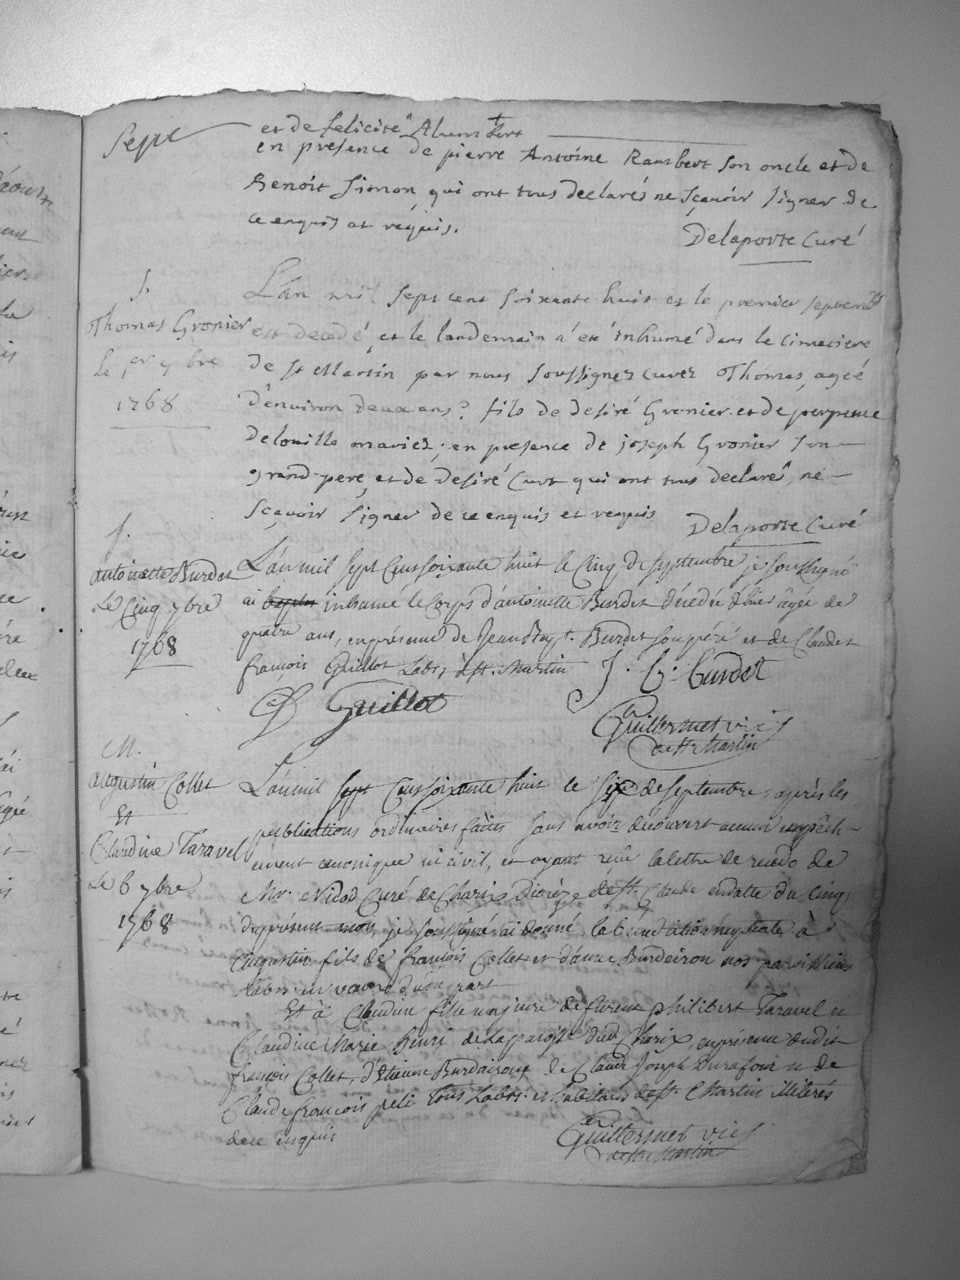 Sept
et de felicité Alum Bert
en presence de pierre Antoine Rambert son oncle et de
Benoit Simon, qui ont tous declarés ne sçavoir signer de
ce enquis et requis.
Delaporte Curé
S.
Thomas Gronier
le 1er 7bre
1768
L'an mil sept cent soixante huit et le premier septembre
est decedé, et le landemain a été inhumé dans le cimetiere
de St Martin par nous soussignez curez Thomas, ageé
d'environ deux ans, fils de desiré Gronier et de perpetue
Delouille mariez; en presence de joseph Gronier son
grand-pere, et de Desiré Curt qui ont tous declarés, ne
sçavoir signer de ce enquis et requis
Delaporte Curé
S.
antoinette Burdet
Le Cinq 7bre
1768
L'an mil sept Cent soixante huit le Cinq de septembre je soussigné
ai inhumé le Corps d'antoinette Burdet décédée d'hier âgée de
quatre ans, en présence de Jean Bapt. Burdet son péré et de Claude
françois Guillot Labr. de St. Martin
J. b. burdet
Cf Guillot
Guillermet vic
de St Martin
M.
augustin Collet
Et
Claudine Taravel
Le 6 7bre
1768
L'an mil sept Cent soixante huit le Six de septembre, après les
publications ordinaires faites sans avoir découvert aucun empêch-
ement canonique ni civil, et ayant reçu la lettre de recedo de
Mr. Nicod Curé de Charix Diocèze de St. Claude en datte du cinq
du présent mois, je soussigné ai donné la bénédiction nuptiale, à
augustin fils de françois Collet et d'anne Burdeiron nos paroissiens
d'une part
Et à Claudine fille majeure de furent philibert Taravel et
Claudine Marie henri de la paroisse dud. Charix en présence dudit
françois Collet, d'Etienne Burdairon, de Claude Joseph Durafour et de
Claude françois peli tous Labrs. et habitants de St. Martin illiterés
de ce enquis
Guillermet vic
de St Martin